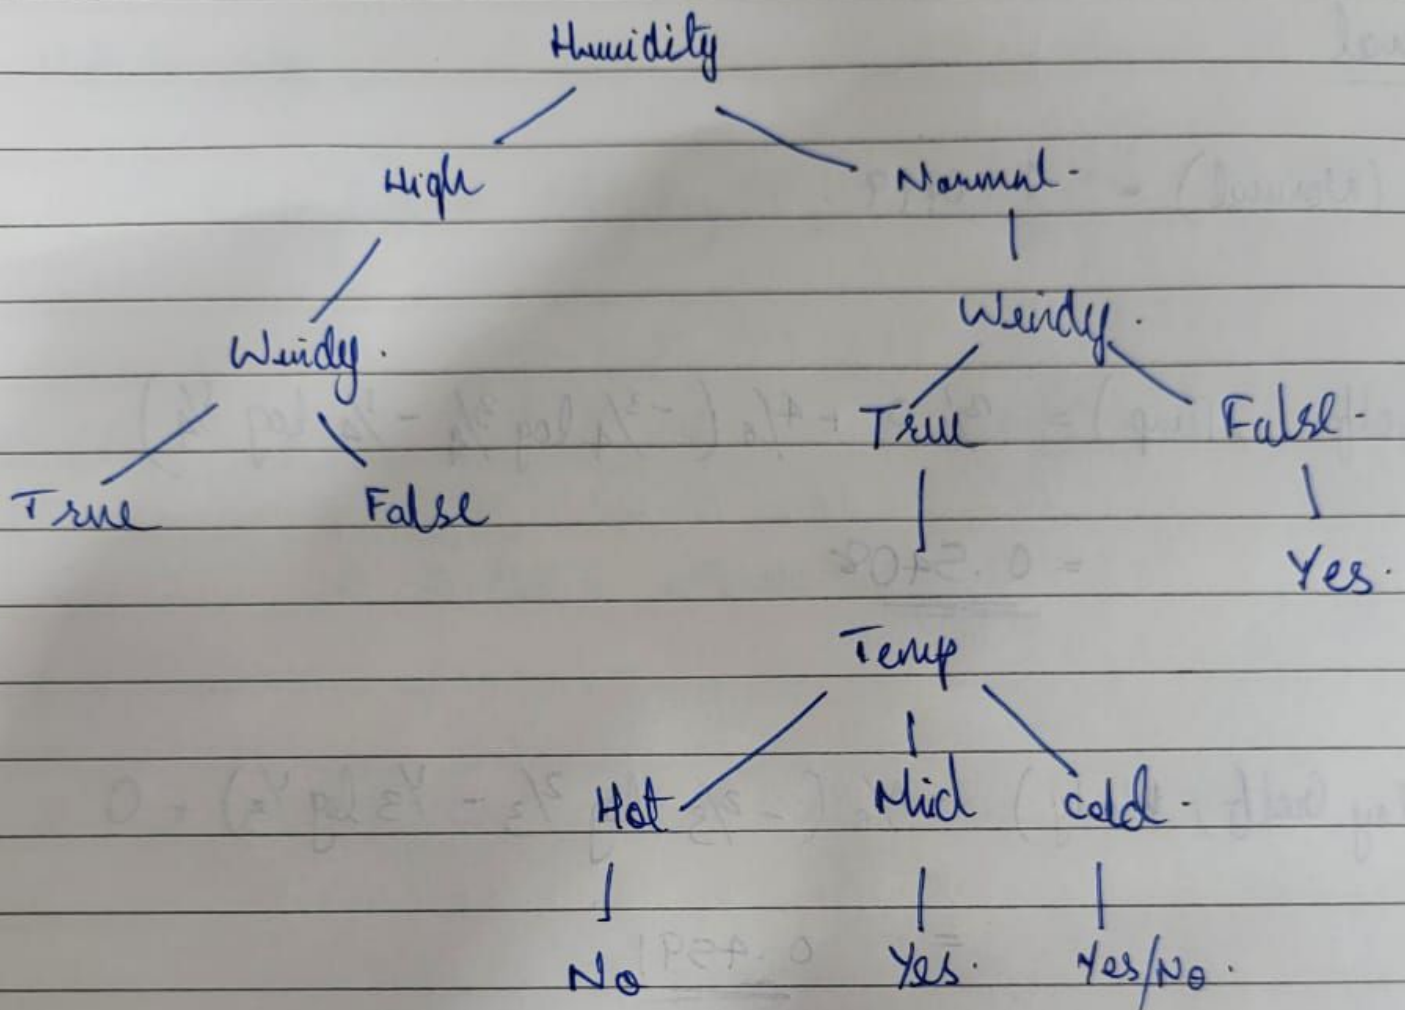 Humidity
High Normal.
Windy. Windy.
True False.
True False
Yes.
Temp
Hot Mid Cold.
No Yes. Yes/No.